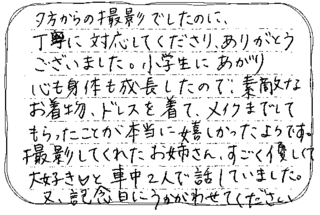 夕方からの撮影でしたのに、
丁寧に対応してくださり、ありがとう
ございました。小学生にあがり
心も身体も成長したので、素敵な
お着物、ドレスを着て、メイクまでして
もらったことが本当に嬉しかったようです。
撮影してくれたお姉さん、すごく優しくて
大好き♡と車中2人で話していました。
又、記念日にうかがわせてください